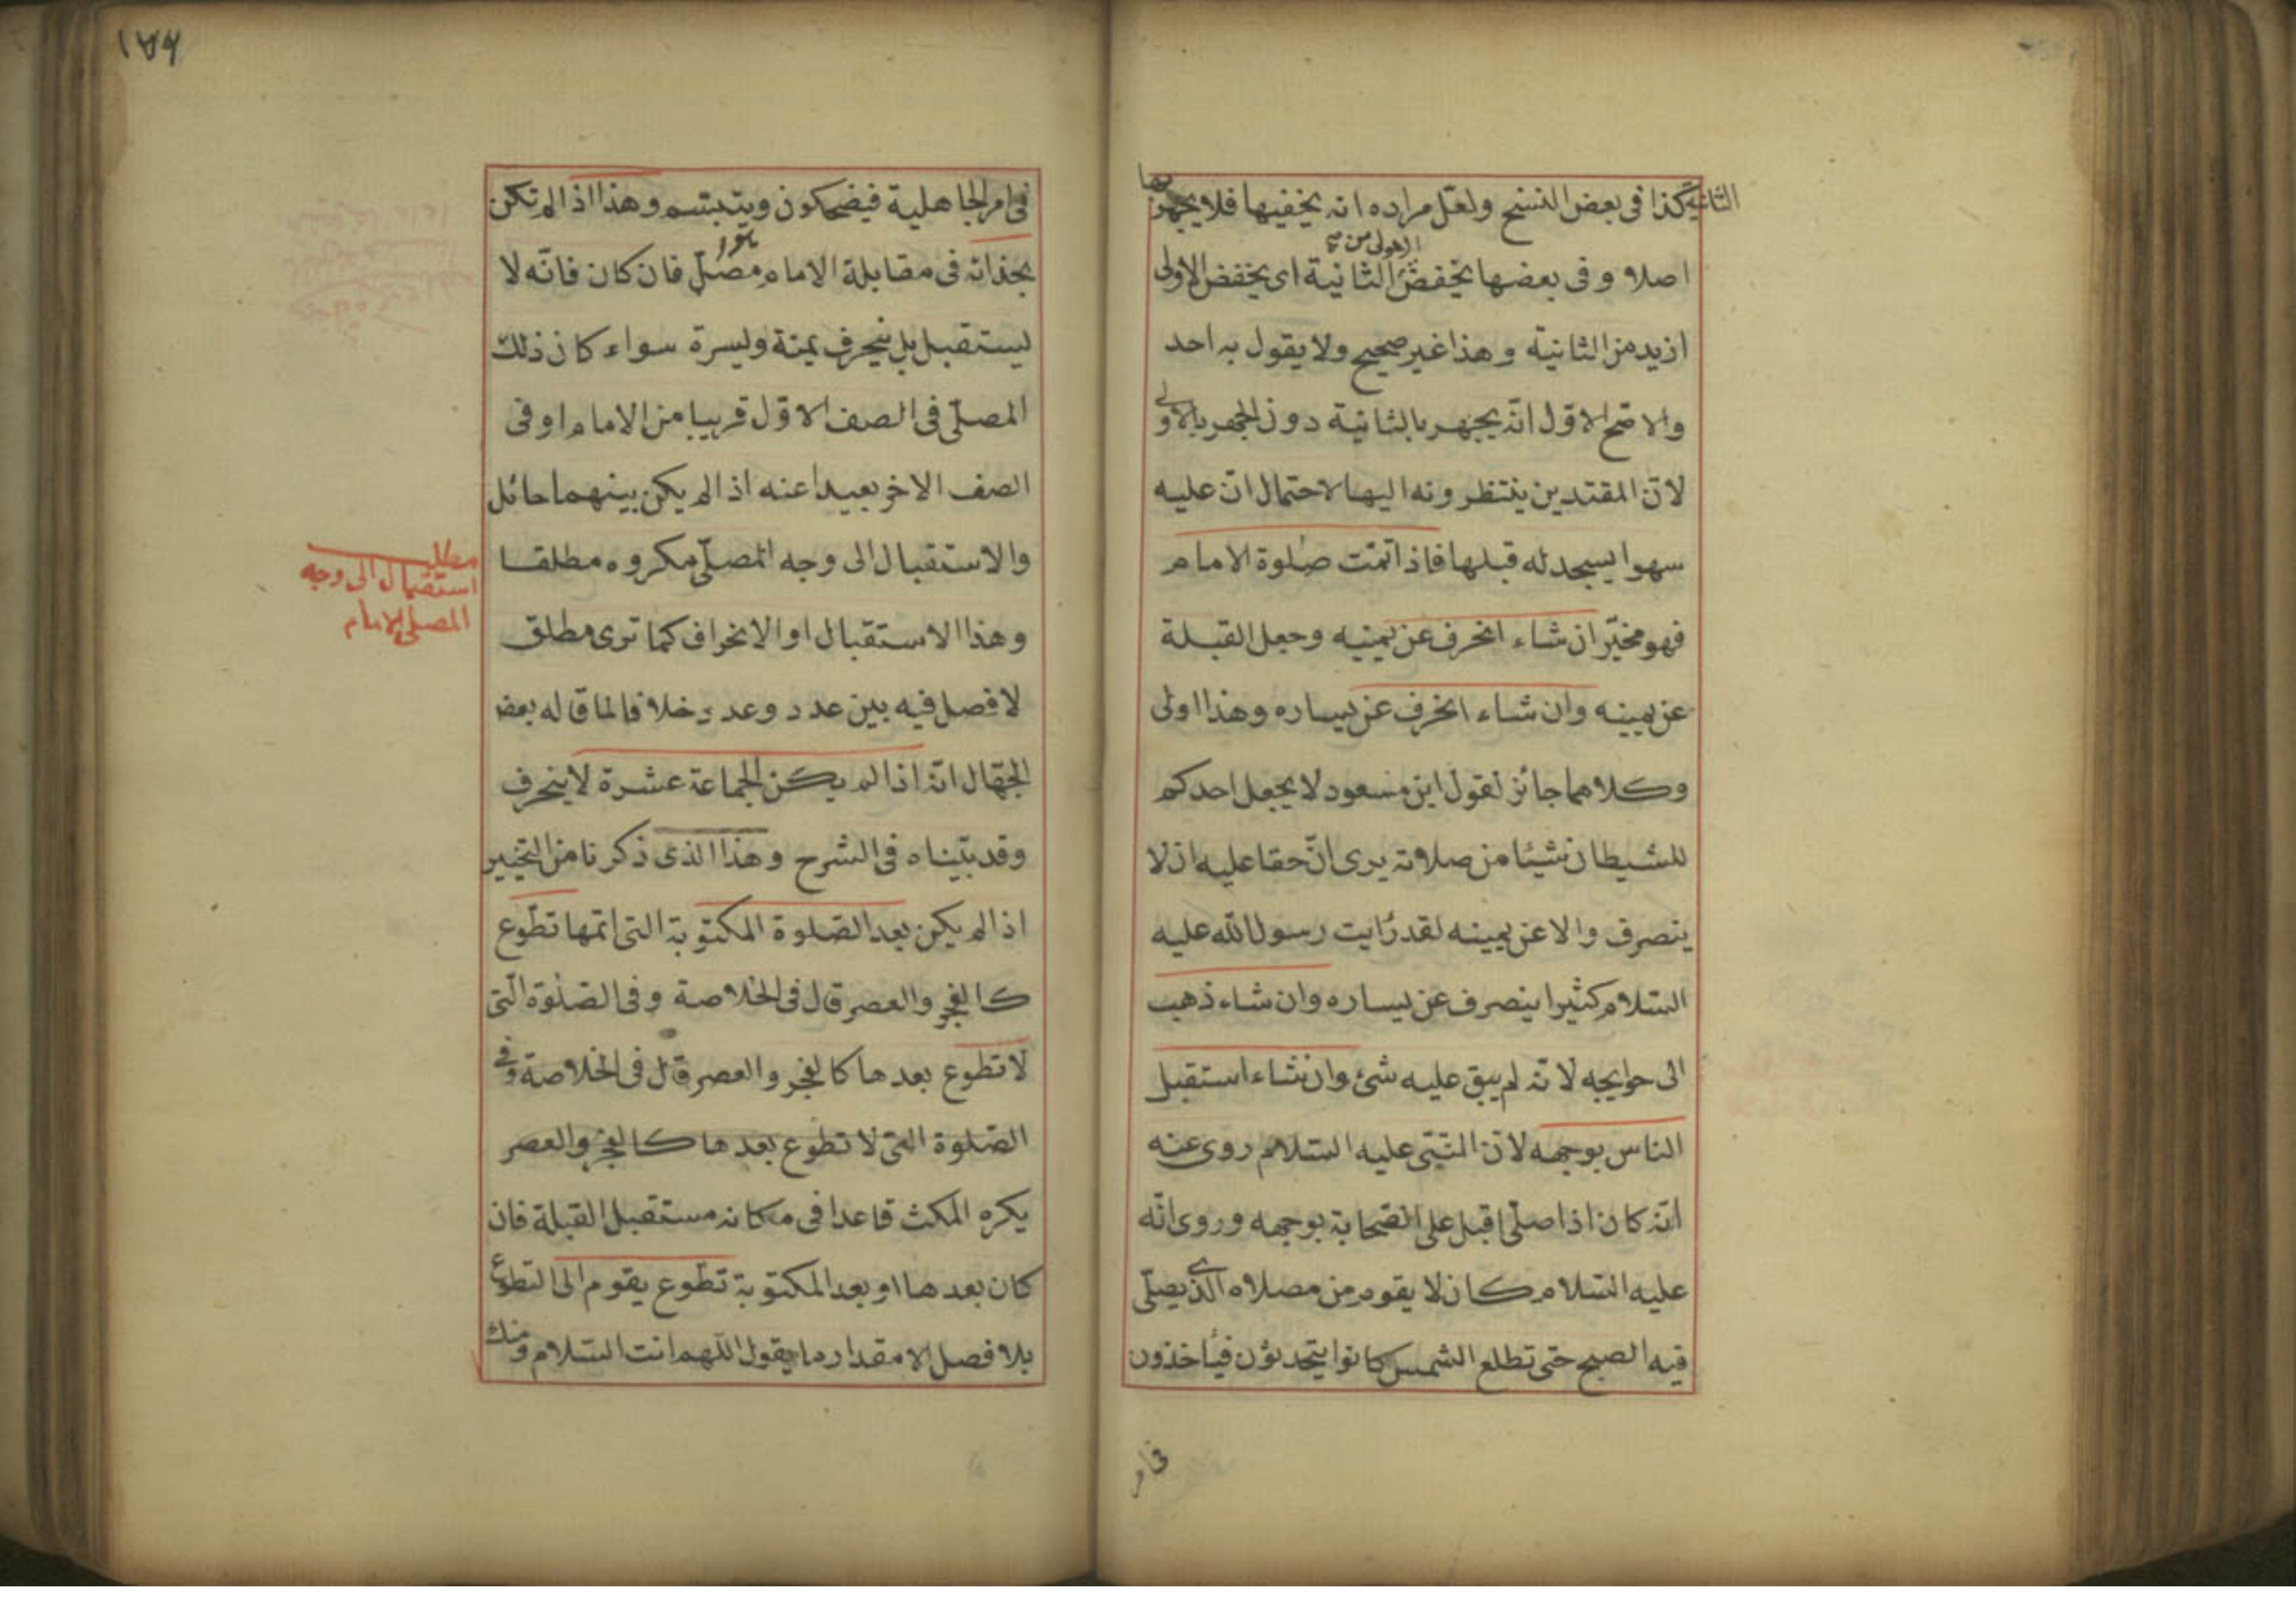 الثانية كذا فى بعض النسخ ولعل مراده انه يخفيها فلا يجهر بها
الاولى من صح
اصلا وفى بعضها يخفض الثانية اى يخفض الاولى
ازيد من الثانية وهذا غير صحيح ولا يقول به احد
والاصح الاول انه يجهر بالثانية دون الجهر بالاولى
لان المقتدين ينتظرونه اليها لاحتمال ان عليه
سهوا يسجد له قبلها فاذا تمت صلوة الامام
فهو مخير ان شاء انحرف عن يمينه وجعل القبلة
عن يمينه وان شاء انحرف عن يساره وهذا اولى
وكلاهما جائز لقول ابن مسعود لا يجعل احدكم
للشيطان شيئا من صلاته يرى ان حقا عليه ان لا
ينصرف والا عن يمينه لقد رايت رسول الله عليه
السلام كثيرا ينصرف عن يساره وان شاء ذهب
الى حوايجه لانه لم يبق عليه شئ وان شاء استقبل
الناس بوجهه لان النبى عليه السلام روى عنه
انه كان اذا صلى اقبل على الصحابة بوجهه وروى انه
عليه السلام كان لا يقوم من مصلاه الذى يصلى
فيه الصبح حتى تطلع الشمس كانوا يتحدثون فياخذون
فى امر
١٧٦
فى امر الجاهلية فيضحكون ويتبسم وهذا اذا لم تكن
بحذائه فى مقابلة الامام مصل فان كان فانه لا
يستقبل بل ينحرف يمنة ويسرة سواء كان ذلك
المصلى فى الصف الاول قريبا من الامام او فى
الصف الاخر بعيدا عنه اذا لم يكن بينهما حائل
والاستقبال الى وجه المصلى مكروه مطلقا
مطلب
استقبال الى وجه
المصلى الامام
وهذا الاستقبال او الانحراف كما ترى مطلق
لا فصل فيه بين عدد وعدد خلافا لما قاله بعض
الجهال انه اذا لم يكن الجماعة عشرة لا ينحرف
وقد بيناه فى الشرح وهذا الذى ذكرنا من التخيير
اذا لم يكن بعد الصلوة المكتوبة التى اتمها تطوع
كالفجر والعصر قال فى الخلاصة وفى الصلوة التى
لا تطوع بعدها كالفجر والعصر قال فى الخلاصة وفى
الصلوة التى لا تطوع بعدها كالفجر والعصر
يكره المكث قاعدا فى مكانه مستقبل القبلة فان
كان بعدها او بعد المكتوبة تطوع يقوم الى التطوع
بلا فصل الا مقدار ما يقول اللهم انت السلام ومنك